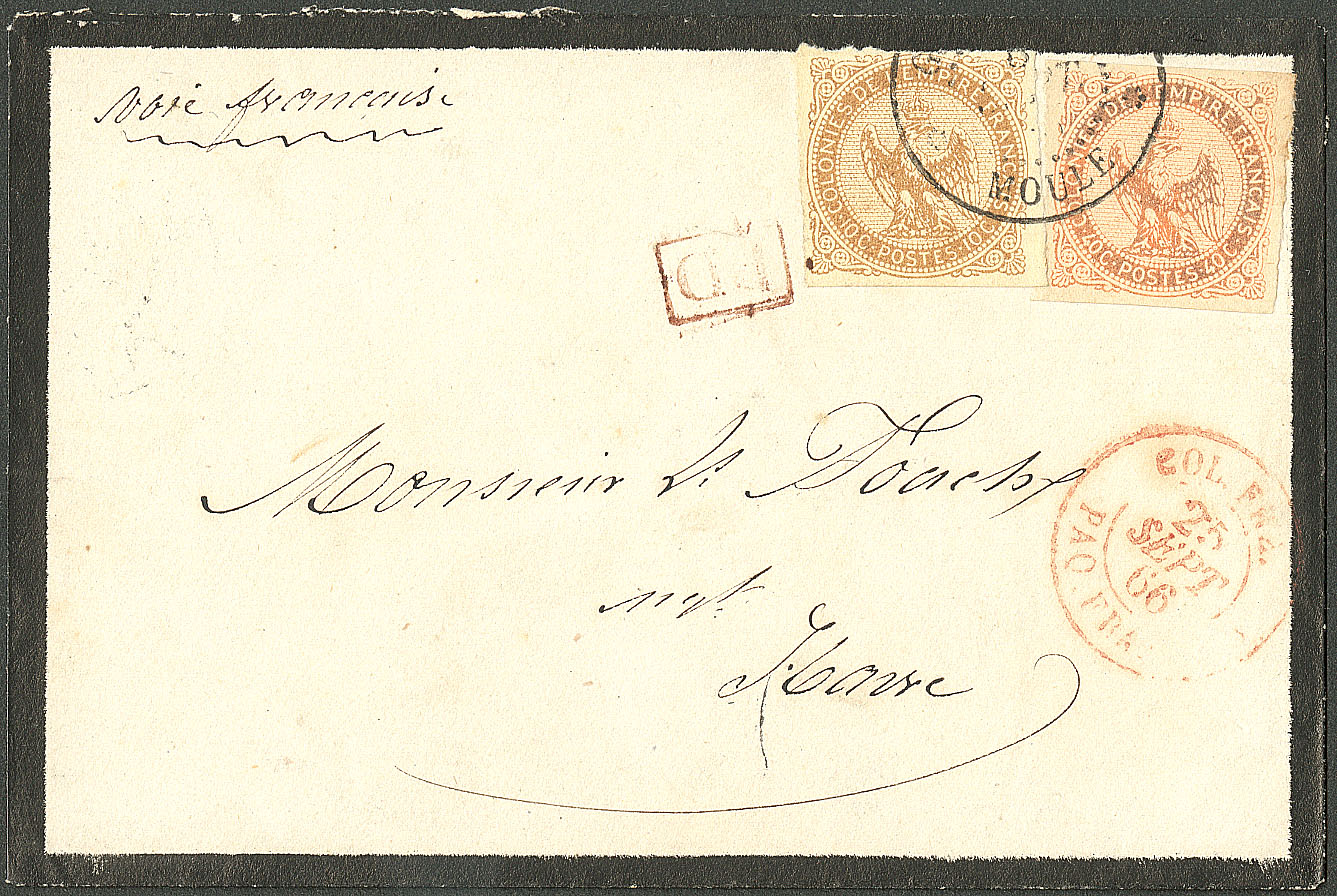 voie francaise
COLONIES DE L'EMPIRE FRANÇAIS
10 C. POSTES 10 C.
COLONIES DE L'EMPIRE FRANÇAIS
40 C. POSTES 40 C.
MOULE
PD
Monsieur
COL. FRA.
25
SEPT
66
PAQ. FRA.
ngt
Havre